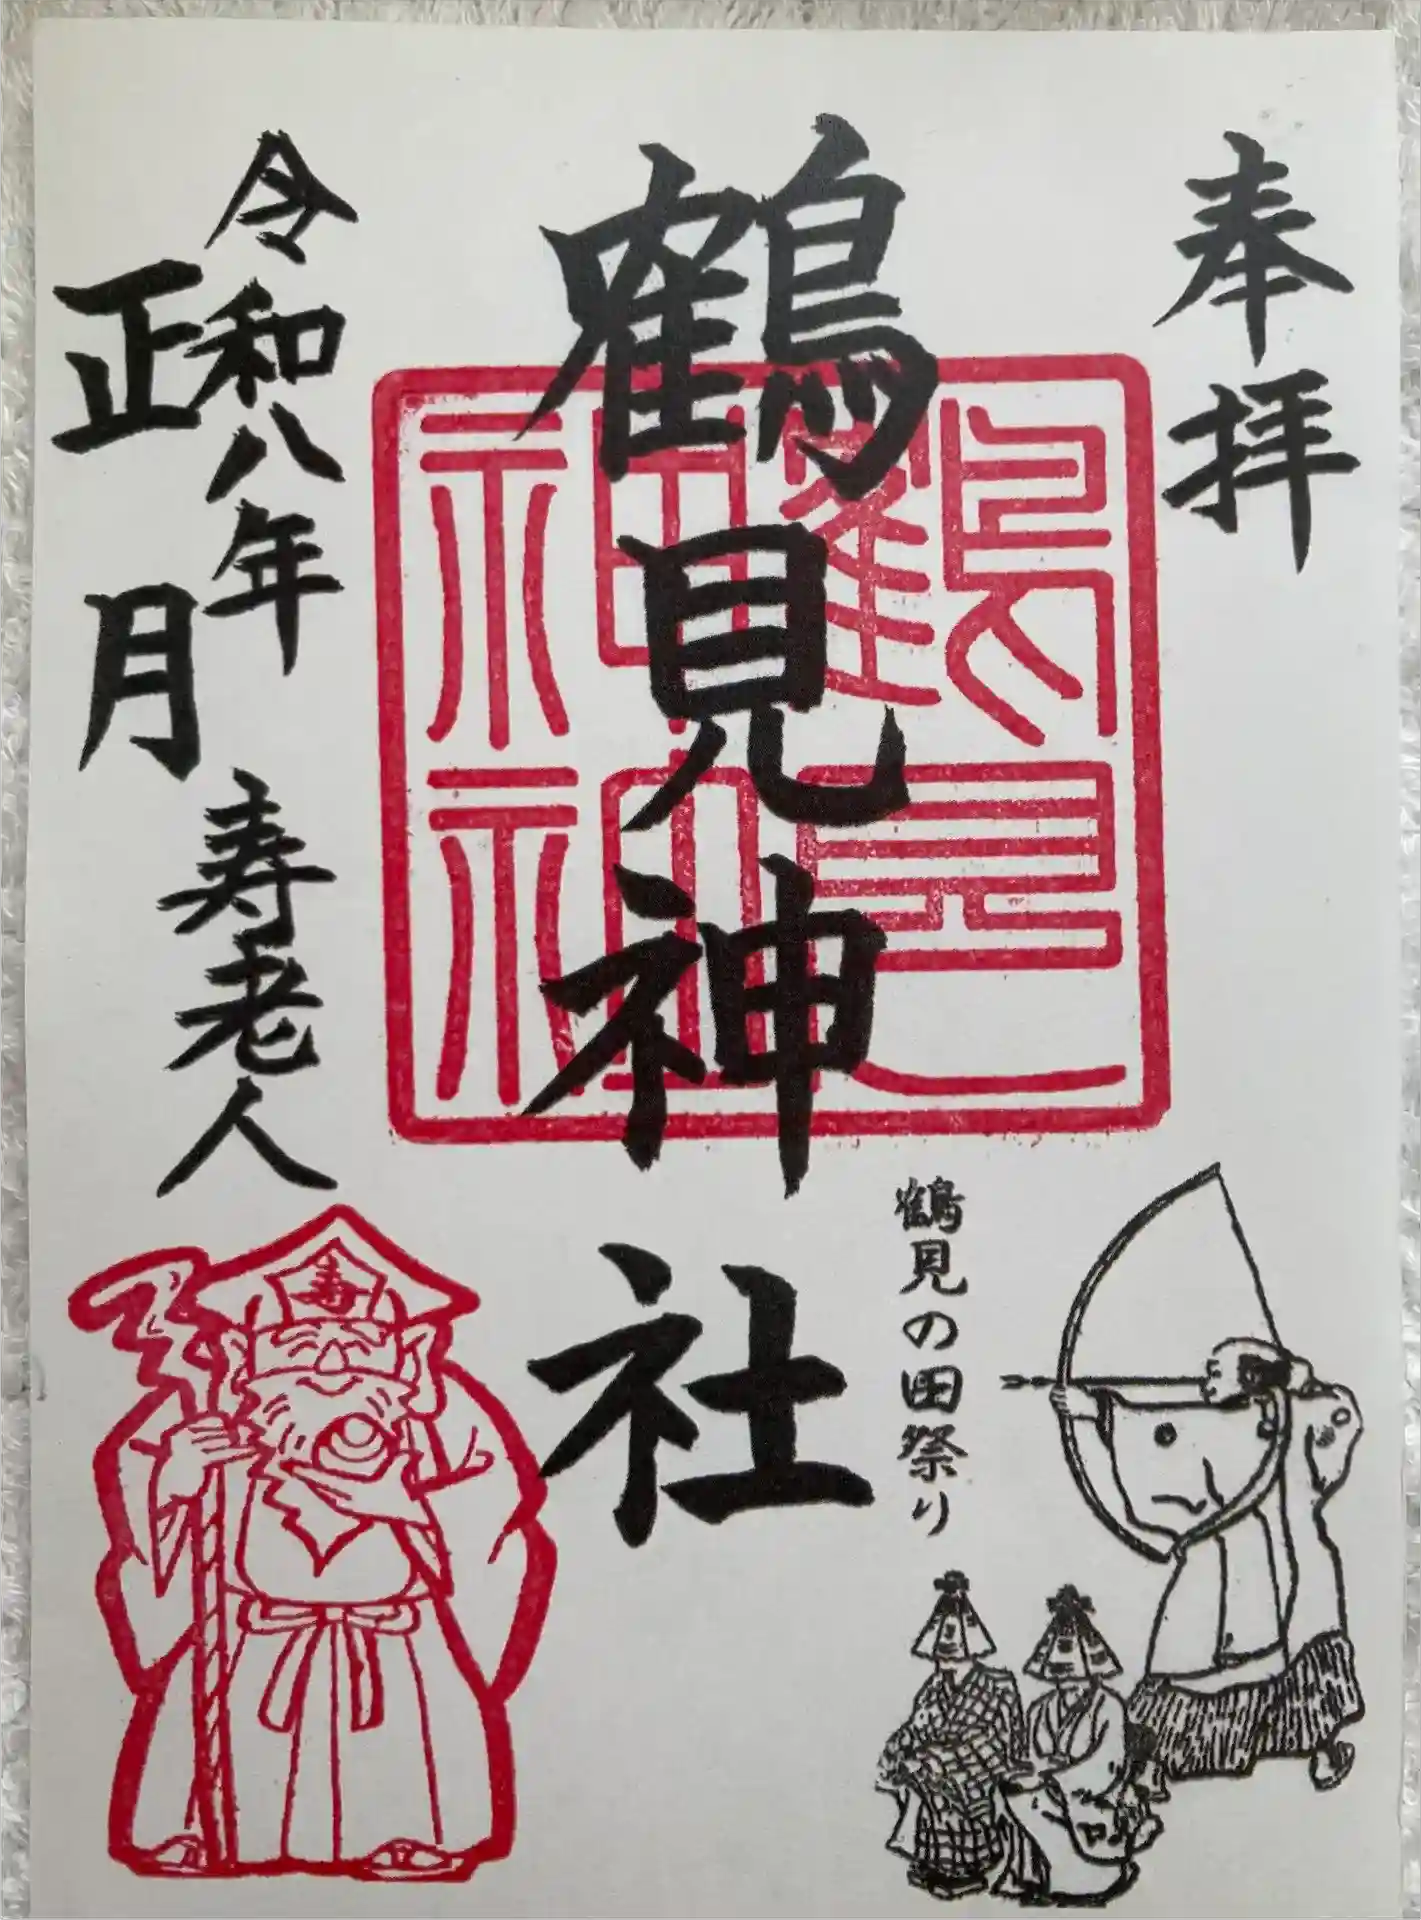 奉拝
鶴見神社
鶴見神社
鶴見の田祭り
令和八年
正月
寿老人
寿